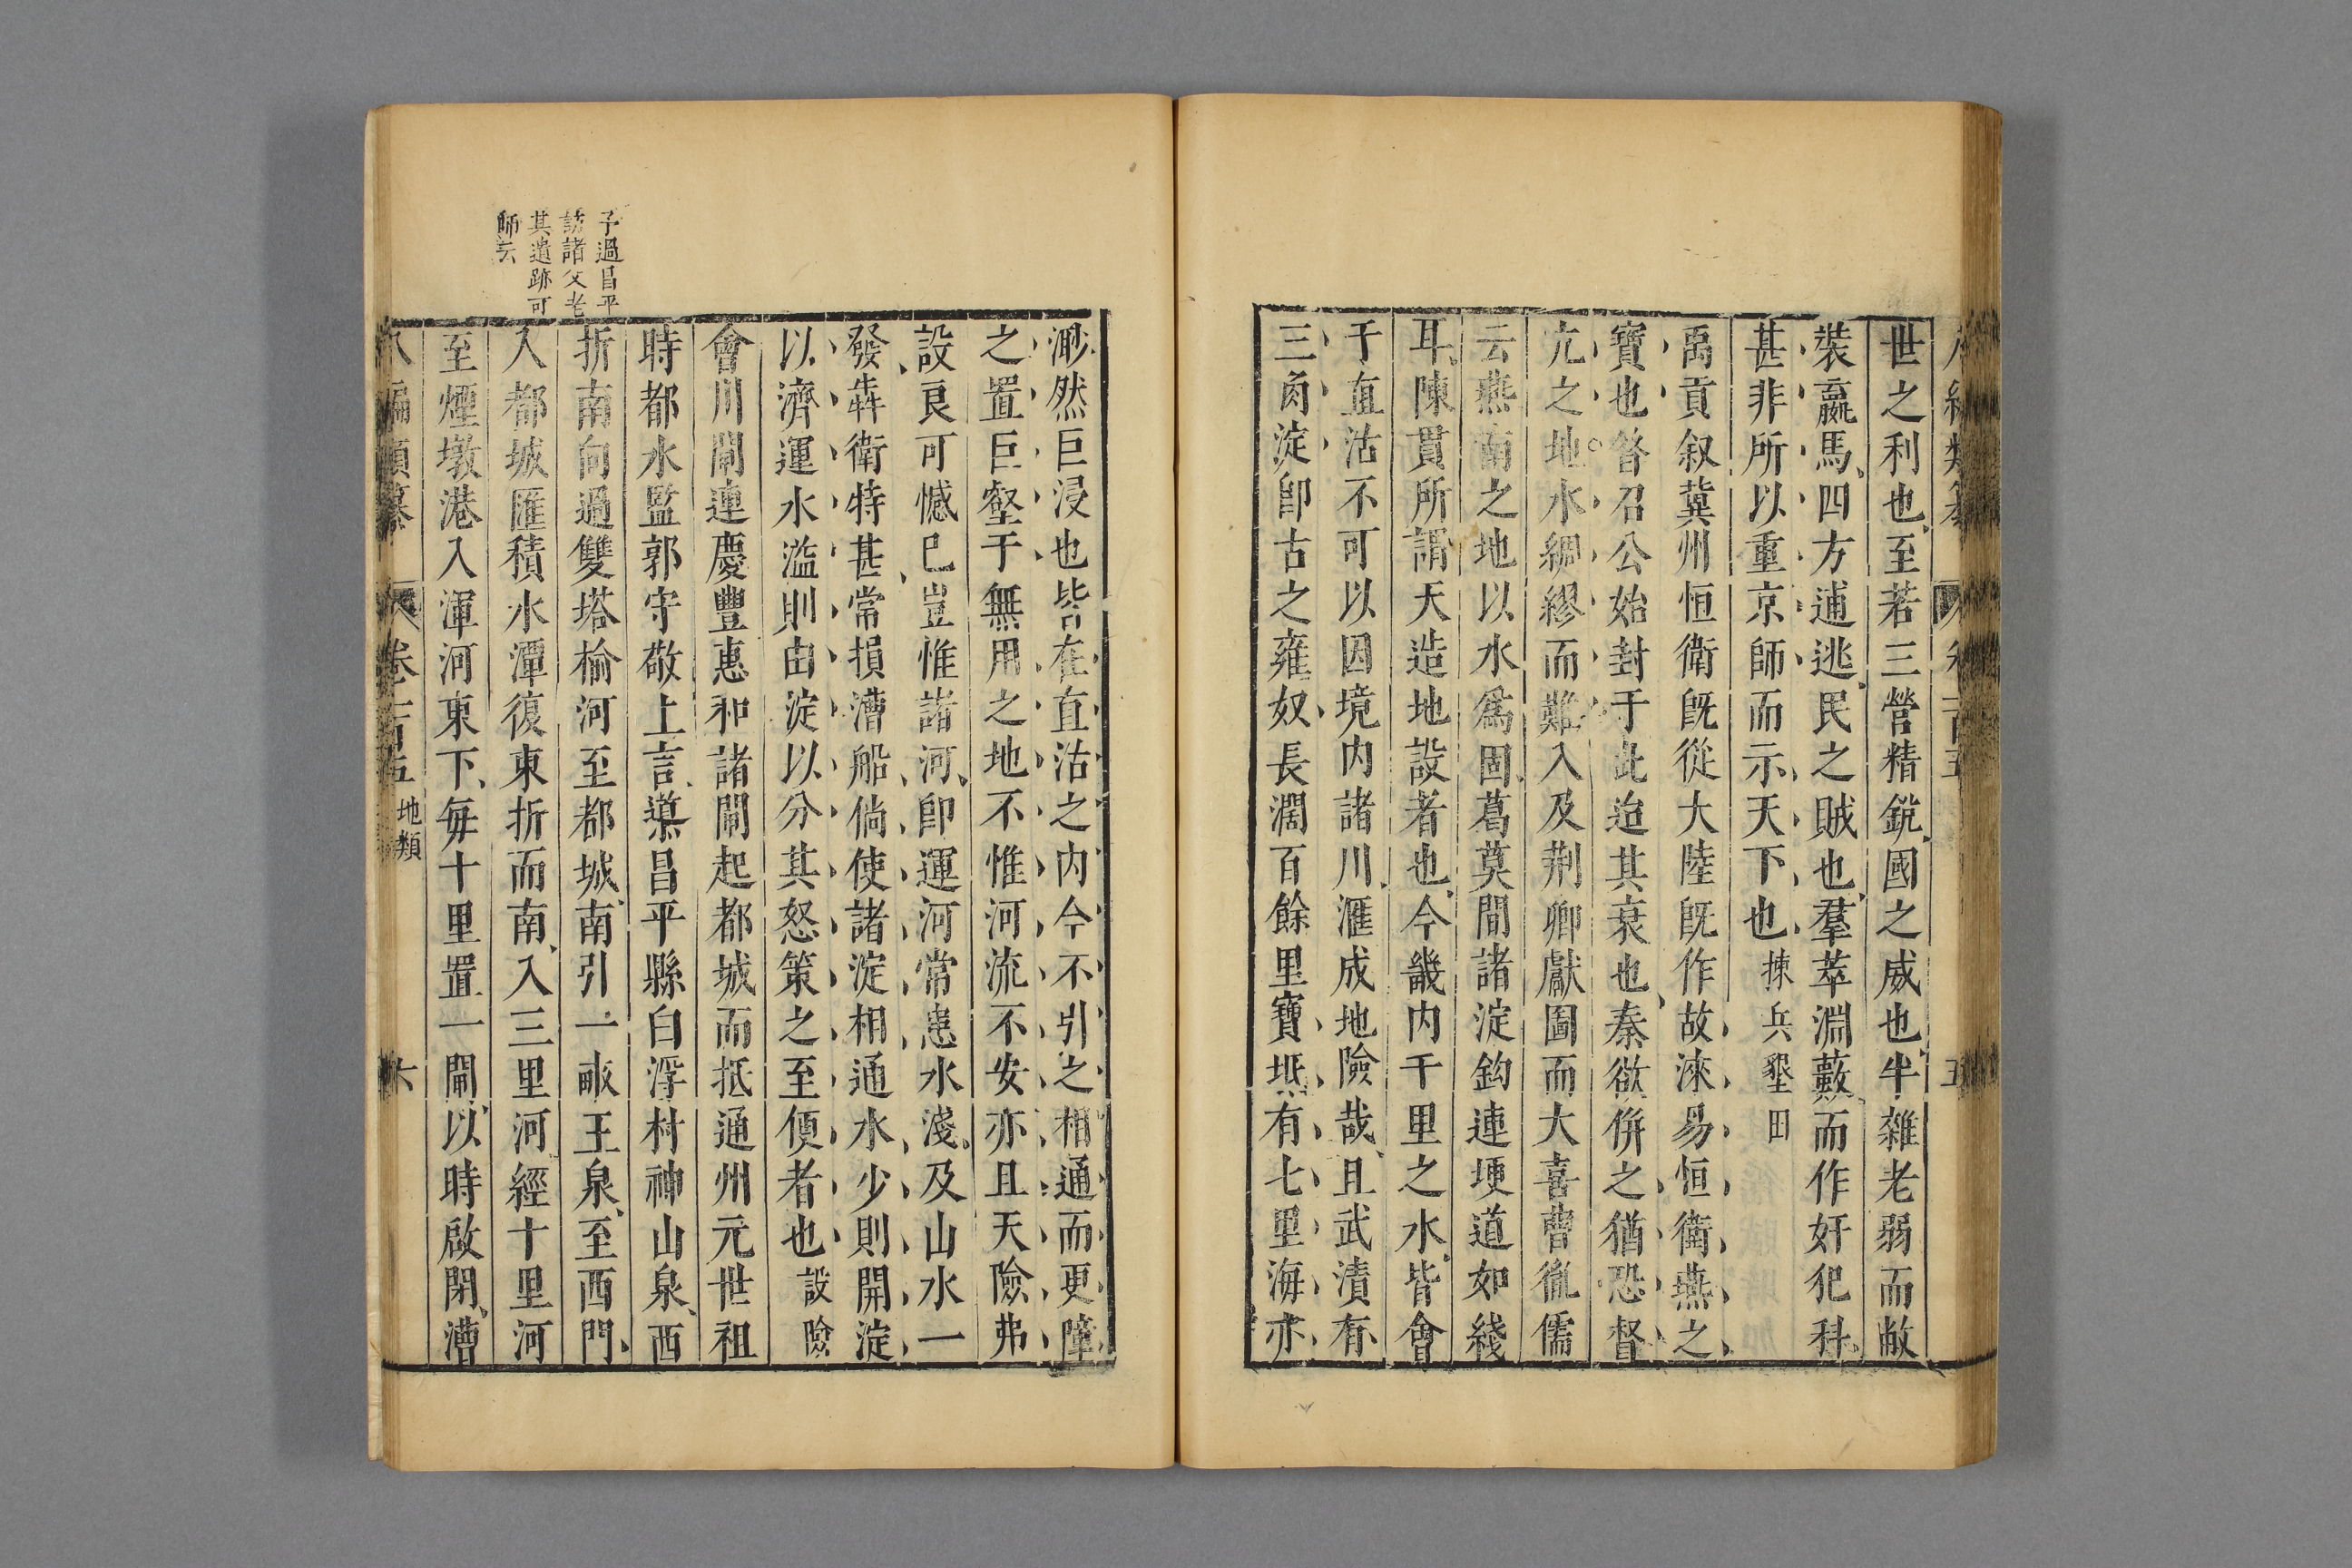 世之利也至若三營精銳國之威也半雜老弱而敝
裝羸馬四方逋逃民之賊也羣萃淵藪而作奸犯科
甚非所以重京師而示天下也揀兵墾田
禹貢叙冀州恒衛旣從大陸旣作故淶易恒衛燕之
寶也昝召公始封于此迨其衰也秦欲併之猶恐督
亢之地水綢繆而難入及荆卿獻圖而大喜曹彬儒
云燕南之地以水爲固葛莫間諸淀鈎連埂道如綫
耳陳貫所謂天造地設者也今畿內千里之水皆會
于直沽不可以因境內諸川滙成地險哉且武清有
三角淀卽古之雍奴長濶百餘里寶坻有七里海亦
渺然巨浸也皆在直沽之內今不引之相通而更障
之置巨壑于無用之地不惟河流不安亦且天險弗
設良可憾巳豈惟諸河卽運河常患水淺及山水一
發犇衛特甚常損漕船倘使諸淀相通水少則開淀
以濟運水溢則由淀以分其怒策之至便者也設險
會川閘連慶豐惠和諸閘起都城而抵通州元世祖
時都水監郭守敬上言導昌平縣白浮村神山泉西
折南向過雙塔榆河至都城南引一畝玉泉至西門
入都城匯積水潭復東折而南入三里河經十里河
至煙墩港入渾河東下每十里置一閘以時啟閉漕
子過昌平
訪諸父老
其遺跡可
師云
八編類纂 卷一百五 地類 六